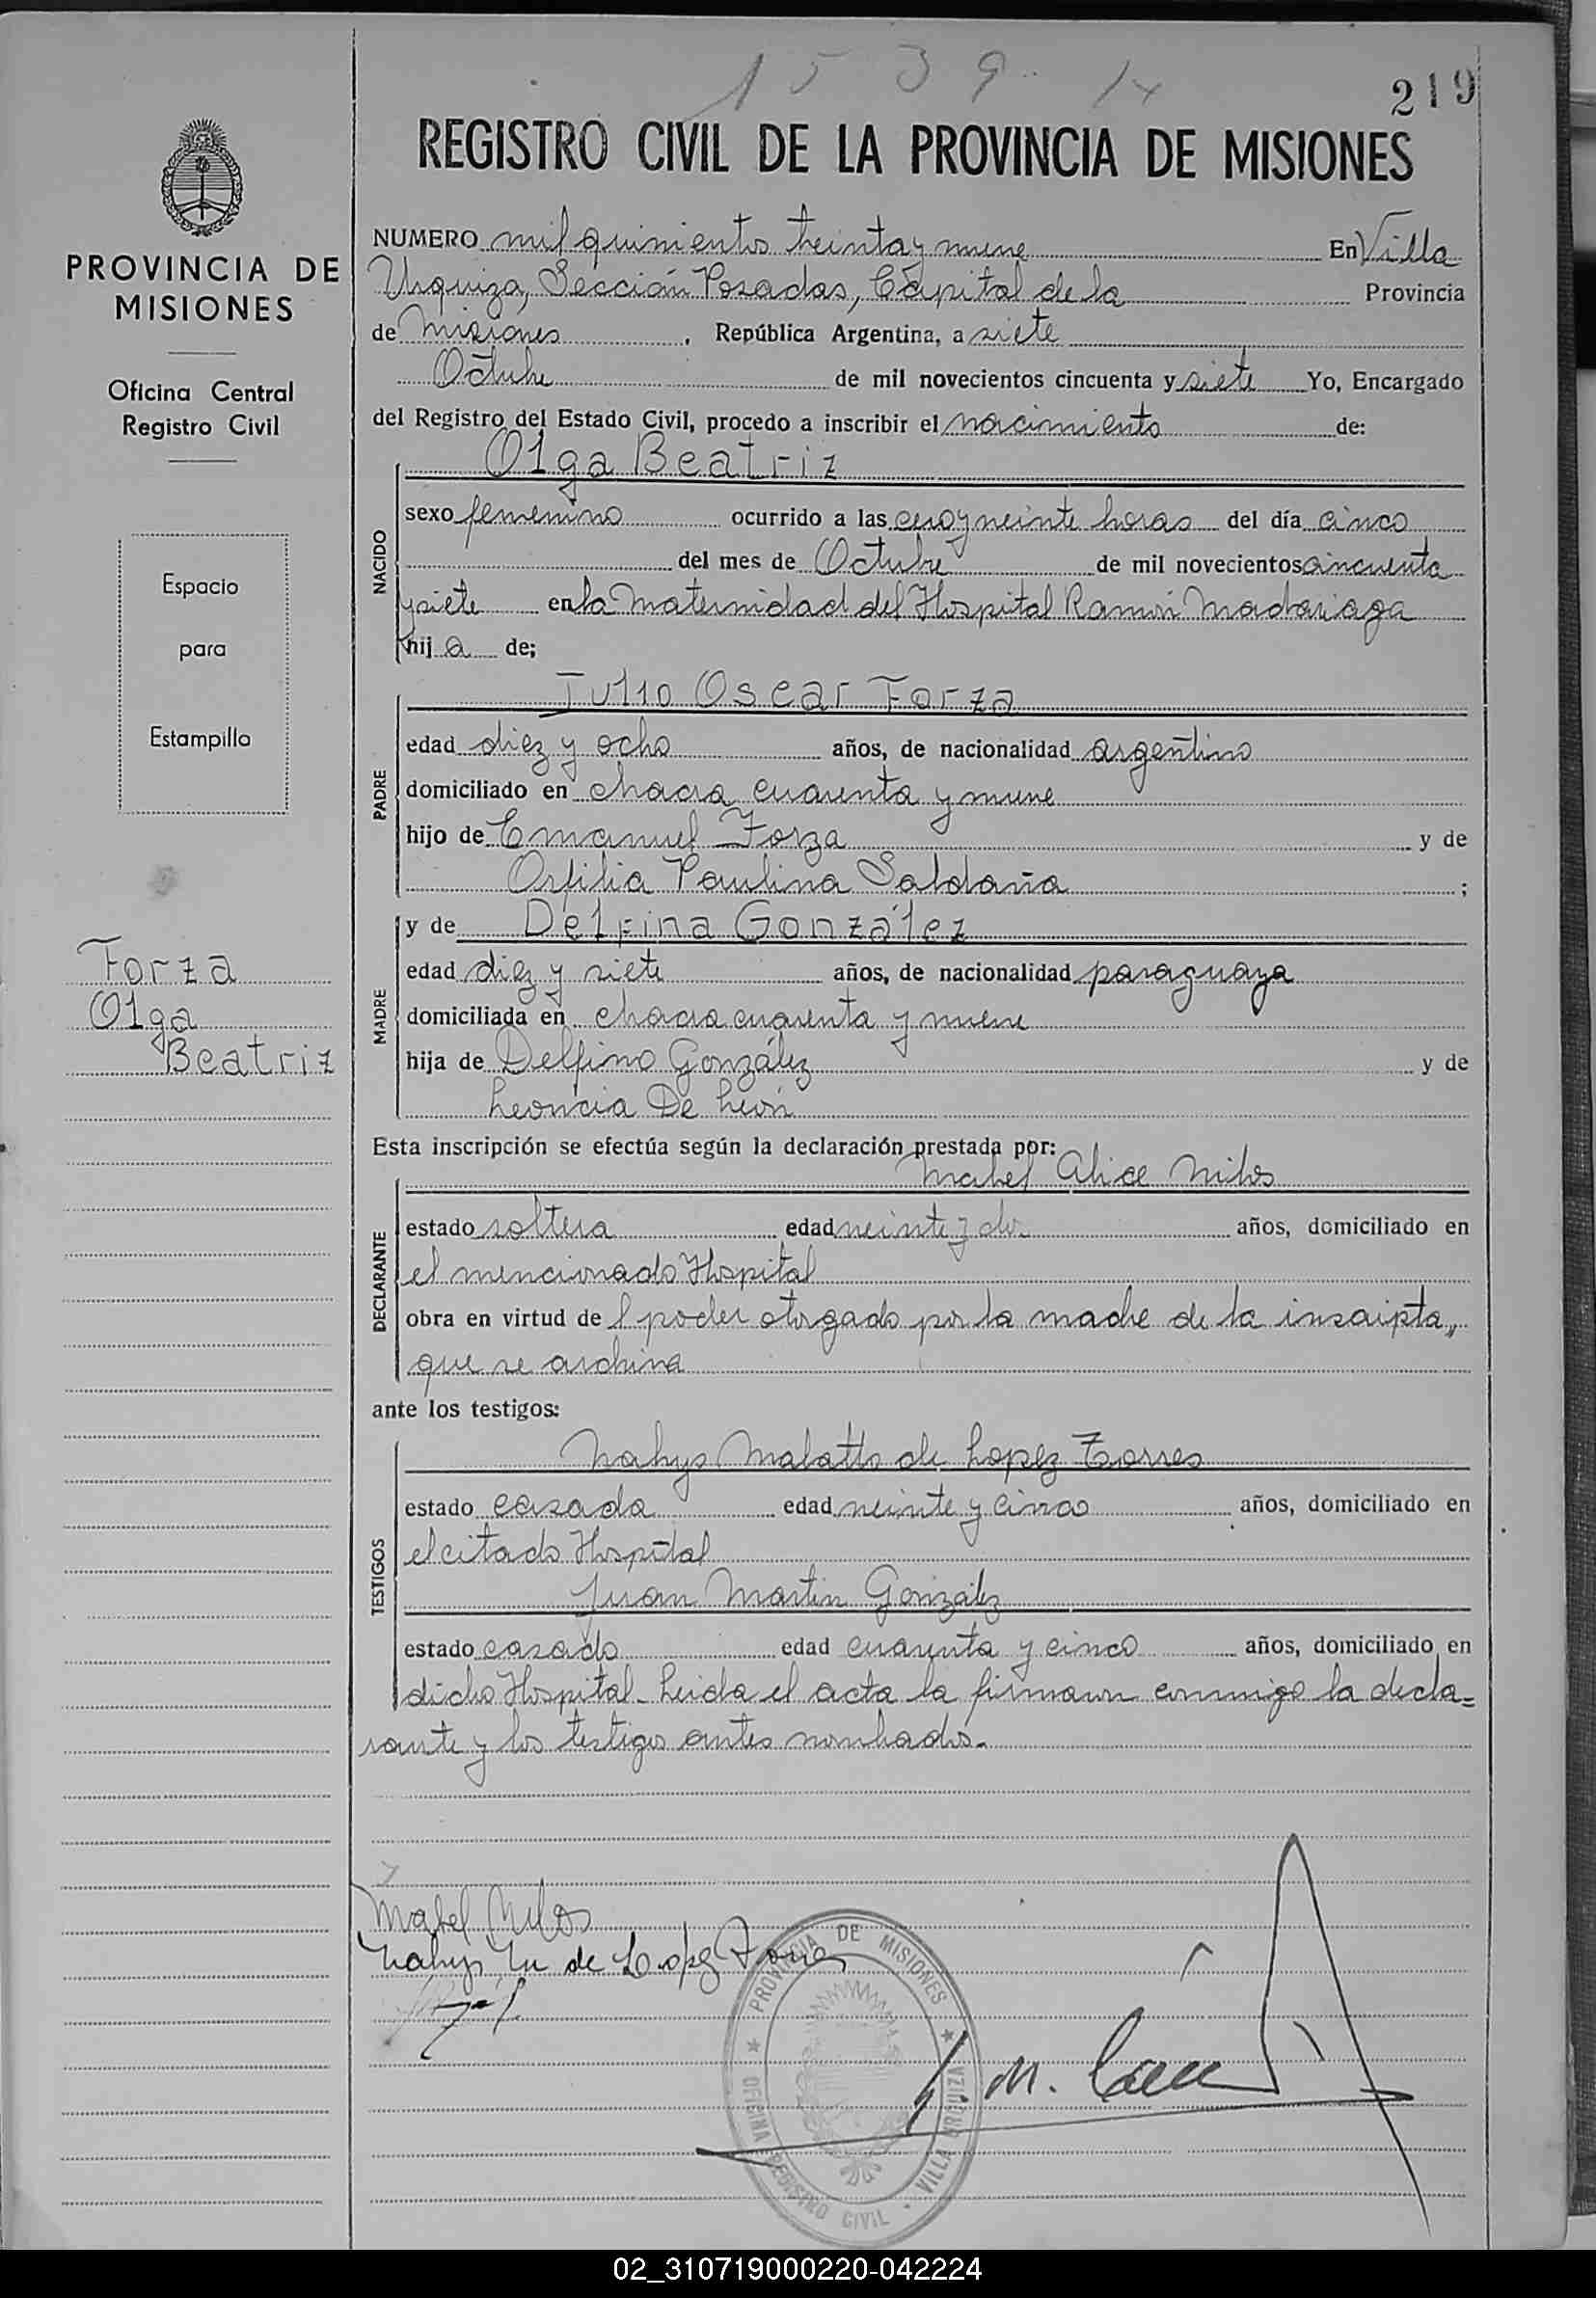 1539 14
219
REGISTRO CIVIL DE LA PROVINCIA DE MISIONES
PROVINCIA DE
MISIONES
Oficina Central
Registro Civil
Espacio
para
Estampilla
Forza
Olga
Beatriz
NUMERO mil quinientos treinta y nueve En Villa
Urquiza, Sección Posadas, Capital de la Provincia
de Misiones, República Argentina, a siete
Octubre de mil novecientos cincuenta y siete Yo, Encargado
del Registro del Estado Civil, procedo a inscribir el nacimiento de:
NACIDO
Olga Beatriz
sexo femenino ocurrido a las cero y veinte horas del día cinco
del mes de Octubre de mil novecientos cincuenta
y siete en la Maternidad del Hospital Ramón Madariaga
hij a de;
PADRE
Julio Oscar Forza
edad diez y ocho años, de nacionalidad argentino
domiciliado en chacra cuarenta y nueve
hijo de Emanuel Forza y de
Orfilia Paulina Saldaña ;
MADRE
y de Delfina González
edad diez y siete años, de nacionalidad paraguaya
domiciliada en chacra cuarenta y nueve
hija de Delfino González y de
Leoncia De León
Esta inscripción se efectúa según la declaración prestada por:
DECLARANTE
Mabel Alice Milos
estado soltera edad veinte y dos años, domiciliado en
el mencionado Hospital
obra en virtud de l poder otorgado por la madre de la inscripta,
que se archiva
ante los testigos:
TESTIGOS
Nahys Malatto de Lopez Torres
estado casada edad veinte y cinco años, domiciliado en
el citado Hospital
Juan Martin González
estado casado edad cuarenta y cinco años, domiciliado en
dicho Hospital. Leida el acta la firmaron conmigo la decla=
rante y los testigos antes nombrados.-
Mabel Milos
Nahys M de Lopez Torres
PROVINCIA DE MISIONES
OFICINA REGISTRO CIVIL · VILLA URQUIZA
02_310719000220-042224